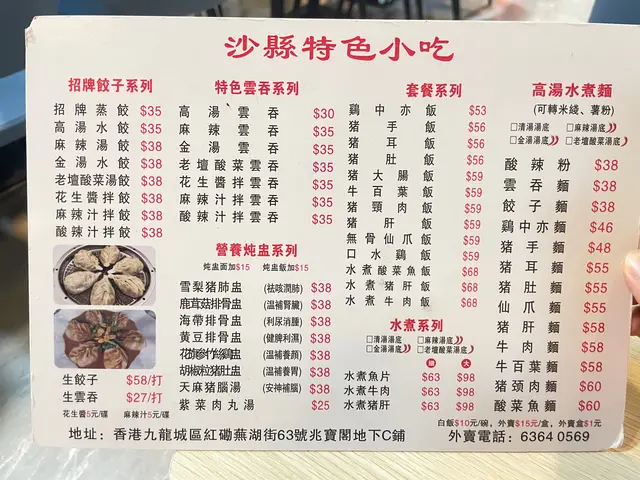 沙縣特色小吃
招牌餃子系列
招牌蒸餃 $35
高湯水餃 $35
麻辣湯餃 $38
金湯水餃 $38
老壇酸菜湯餃 $38
花生醬拌餃 $38
麻辣汁拌餃 $38
酸辣汁拌餃 $38
生餃子 $58/打
生雲吞 $27/打
花生醬5元/碟 麻辣汁5元/碟
特色雲吞系列
高湯雲吞 $30
麻辣雲吞 $35
金湯雲吞 $35
老壇酸菜雲吞 $35
花生醬拌雲吞 $35
麻辣汁拌雲吞 $35
酸辣汁拌雲吞 $35
營養炖盅系列
炖盅面加$15 炖盅飯加$15
雪梨豬肺盅 (祛咳潤肺) $38
鹿茸菇排骨盅 (温補腎臟) $38
海帶排骨盅 (利尿消腫) $38
黄豆排骨盅 (健脾利濕) $38
花旗參竹絲鷄盅 (温補養顏) $38
胡椒粒豬肚盅 (温補養胃) $38
天麻豬腦湯 (安神補腦) $38
紫菜肉丸湯 $25
套餐系列
鷄中亦飯 $53
豬手飯 $56
豬耳飯 $56
豬肚飯 $56
豬大腸飯 $59
牛百葉飯 $59
豬頸肉飯 $59
豬肝飯 $59
無骨仙爪飯 $59
口水鷄飯 $59
水煮酸菜魚飯 $68
水煮豬肝飯 $68
水煮牛肉飯 $68
水煮系列
□清湯湯底 □麻辣湯底
□金湯湯底 □老壇酸菜湯底
細 大
水煮魚片 $63 $98
水煮牛肉 $63 $98
水煮豬肝 $63 $98
高湯水煮麵
(可轉米綫、薯粉)
□清湯湯底 □麻辣湯底
□金湯湯底 □老壇酸菜湯底
酸辣粉 $38
雲吞麵 $38
餃子麵 $38
鷄中亦麵 $46
豬手麵 $48
豬耳麵 $55
豬肚麵 $55
仙爪麵 $55
豬肝麵 $58
牛肉麵 $58
牛百葉麵 $58
豬颈肉麵 $60
酸菜魚麵 $60
白飯$10元/碗，外賣$15元/盒，外賣盒$1元
地址：香港九龍城區紅磡蕪湖街63號兆寶閣地下C鋪 外賣電話：6364 0569